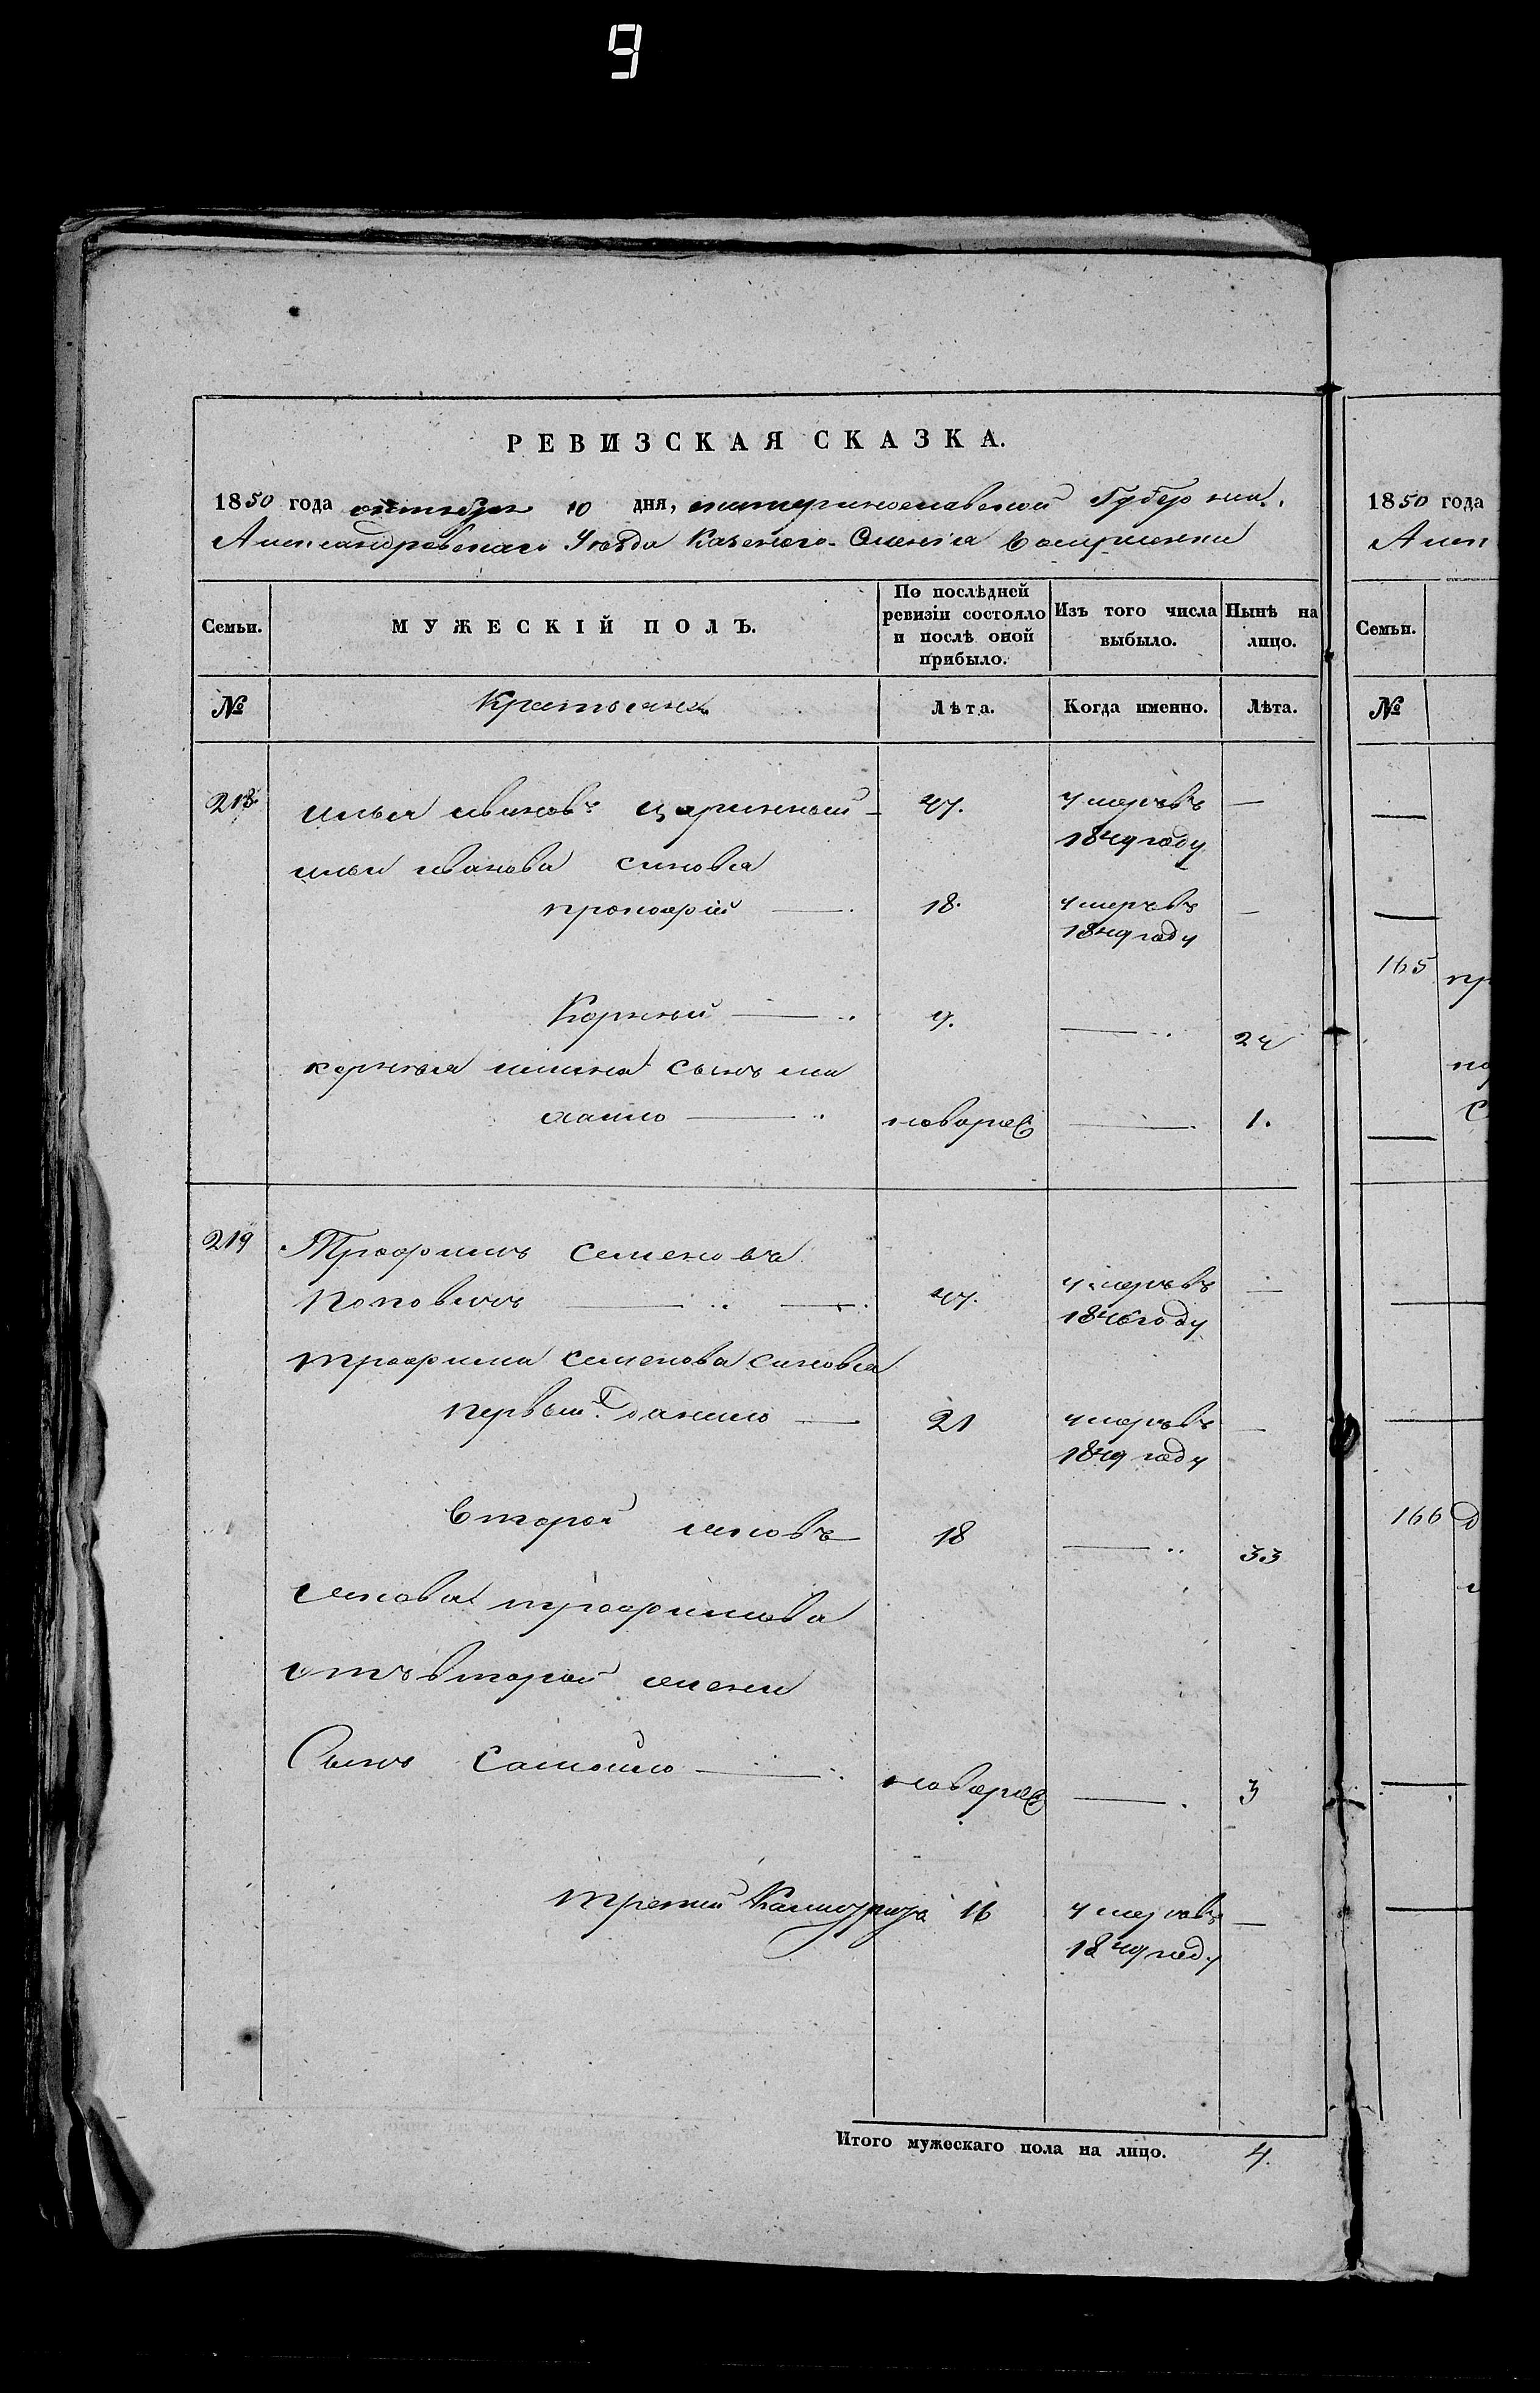 9
РЕВИЗСКАЯ СКАЗКА.
1850 года октября 10 дня, екатеринославской Губернии.
Александровскаго Уезда Казеннаго Селенія
Семьи.
МУЖЕСКІЙ ПОЛЪ.
По послѣдней
ревизіи состояло
и послѣ оной
прибыло.
Изъ того числа
выбыло.
Нынѣ на
лицо.
№
Крестьяне
Лѣта.
Когда именно.
Лѣта.
218 илья ивановъ 47. умеръ въ —
1849 году
ильи иванова синовья
прокофій — 18. умеръ въ —
1849 году
Корней — 7. — 24
корнея ильина сынъ
новорож — 1.
219 Трофимъ семеновъ
Поповичъ — 47. умеръ въ —
году
трофима семенова синовья
первый данило — 21 умеръ въ —
1849 году
второй 18 — 33
трофимова
отъ второй жени
Сынъ самойло — новорож — 3
третий 16 умеръ въ —
1849 году
Итого мужескаго пола на лицо. 4.
1850 года
Алек
Семьи.
№
165 пр
166